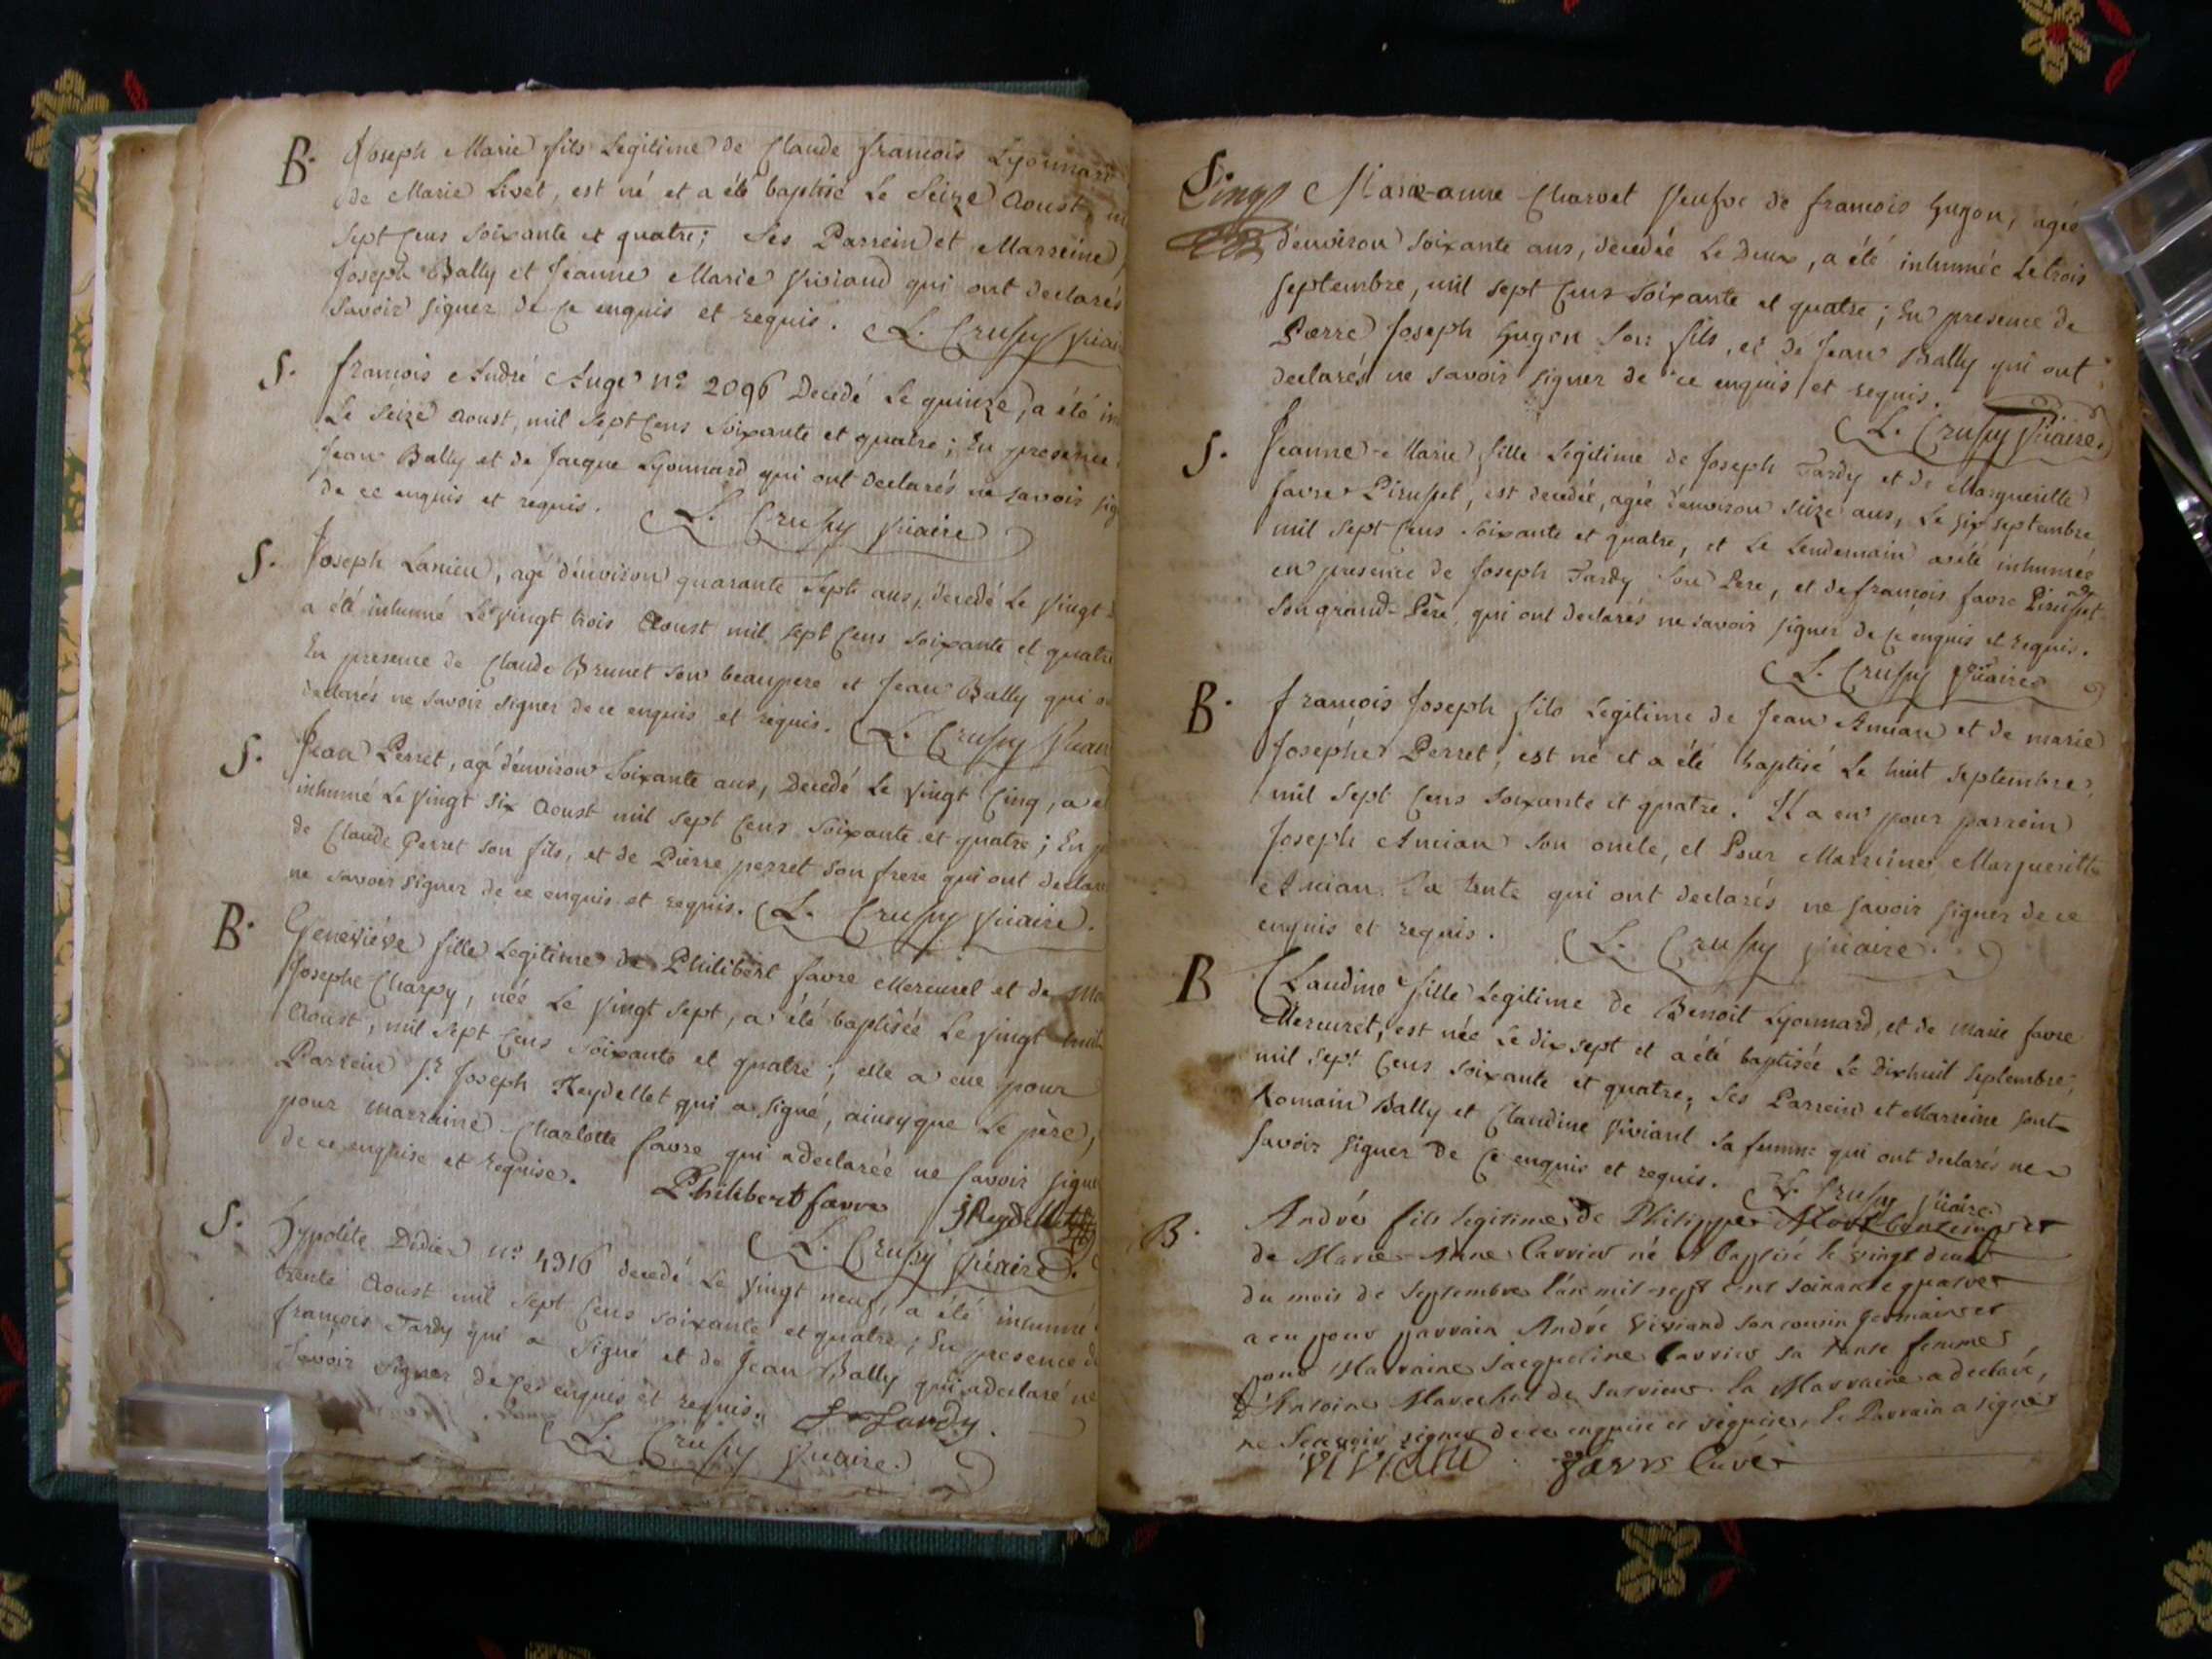 B. Joseph Marie fils Legitime de Claude francois Lyonnard
de Marie Livet, est né et a été baptisé Le Seize Aoust,
Sept Cens Soixante et quatre; Ses Parrein et Marreine,
Joseph Bally et Jeanne Marie Viviand qui ont declarés
Savoir signer de Ce enquis et requis. L. Crussy Vicaire
S. francois André Ange no 2096 Decedé Le quinze, a été
Le Seize Aoust, mil Sept Cens Soixante et quatre; En presence
Jean Bally et de Jacque Lyonnard qui ont declarés ne savoir
de ce enquis et requis. L. Crussy Vicaire
S. Joseph Lanieu, agé d'environ quarante Sept ans, decedé Le Vingt
a été inhumé Le Vingt trois Aoust mil sept Cens soixante et quatre
En presence de Claude Brunet son beaupere et Jean Bally qui
declarés ne savoir signer de ce enquis et requis. L. Crussy Vicaire
S. Jean Perret, agé d'environ Soixante ans, Decedé Le Vingt Cinq, a
inhumé Le Vingt Six Aoust mil sept Cens Soixante et quatre; En
de Claude Perret son fils, et de Pierre perret son frere qui ont declaré
ne savoir signer de ce enquis et requis. L. Crussy Vicaire.
B. Geneviéve fille Legitime de Philibert favre Mercuret et de
Josephe Charpy, née Le Vingt Sept, a été baptisée Le Vingt huit
Aoust, mil Sept Cens Soixante et quatre; elle a eue pour
Parrein Sr. Joseph Reydellet qui a signé, ainsy que Le père,
pour marraine Charlotte favre qui a declarée ne savoir signer
de ce enquise et requise. Philibert favre J Reydellet
L. Crussy Vicaire.
S. Hypolite Didier no 4316 decedé Le Vingt neuf, a été inhumé
trente Aoust mil Sept Cens soixante et quatre; En presence de
françois Tardy qui a Signé et de Jean Bally qui a declaré ne
Savoir Signer de Ce enquis et requis. f Tardy.
L. Crussy Vicaire.
S. Marie-anne Charvet Veufve de francois Gugon, agée
d'environ soixante ans, decedée Le Deux, a été inhumée Le trois
septembre, mil sept Cens soixante et quatre; En presence de
Pierre Joseph Gugon Son fils, et de Jean Bally qui ont
declarés ne savoir signer de ce enquis et requis.
L. Crussy Vicaire.
S. Jeanne-Marie fille Legitime de Joseph Tardy et de Margueritte
favre Pirusset, est decedée, agée d'environ seize ans, Le six septembre
mil sept Cens soixante et quatre, et Le Lendemain a été inhumée
en presence de Joseph Tardy Son Pere, et de françois favre Pirusset
Son grand-Père, qui ont declarés ne savoir signer de Ce enquis et requis.
L. Crussy Vicaire
B. françois Joseph fils Legitime de Jean Amian et de marie
Josephe Perret, est né et a été baptisé Le huit septembre,
mil Sept Cens Soixante et quatre. Il a eu pour parrein
Joseph Amian Son oncle, et Pour Marreine Margueritte
Amian Sa tante qui ont declarés ne savoir signer de ce
enquis et requis. L. Crussy Vicaire.
B Claudine fille Legitime de Benoit Lyonnard, et de marie favre
Mercuret, est née Le dix sept et a été baptisée Le dixhuit Septembre,
mil Sept Cens soixante et quatre, Ses Parrein et Marreine sont
Romain Bally et Claudine Viviant sa femme qui ont declarés ne
savoir signer de Ce enquis et requis. L. Crussy Vicaire
B. André fils legitime de Philippe et
de Marie Anne Carrier né et baptisé le vingt deux
du mois de Septembre l'an mil sept cent soixante quatre
a eu pour parrain André Viviand son cousin germain et
pour Marraine Jacqueline Carrier sa tante femme
d'Antoine Marechal de la Marraine a declaré,
ne Scavoir signer de ce enquise et requise, le Parrain a signé
Viviand favre Curé